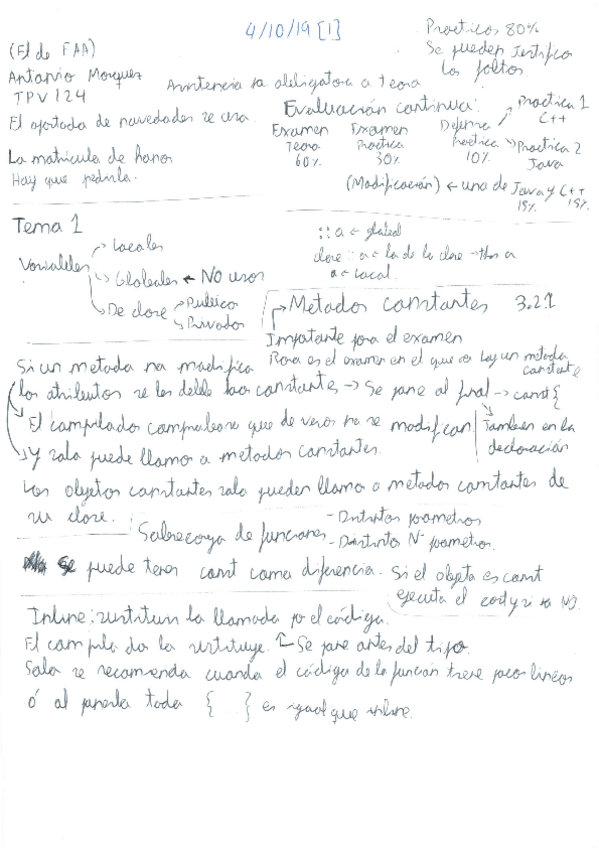 4/10/19 [1]
Practicas 80%
Se pueden justificar
las faltas.
(El de FAA)
Antonio Marquez
TPV 124
Asistencia no obligatoria a teoria
El apartado de novedades se usa.
La matricula de honor
Hay que pedirla.
Evaluación continua:
Examen Teoria 60%
Examen Practica 30%
Defensa Practica 10%
→ Practica 1 C++
→ Practica 2 Java
(Modificación) ← una de Java y C++
15% 15%
Tema 1
Variables
→ Locales
→ Globales ← NO usar
→ De clase
→ Publico
→ Privados
::a ← global
clase::a ← la de la clase → this a
a ← local.
→ Metodos constantes 3.2.1
Importante para el examen
Raro es el examen en el que no hay un metodo
constante
Si un metodo no modifica
los atributos se les debe hacer constantes → Se pone al final → const {
Tambien en la
declaración
El compilador comprobara que de veras no se modifican
Y solo puede llamar a metodos constantes.
Los objetos constantes solo pueden llamar a metodos constantes de
su clase.
Sobrecarga de funciones
- Distintos parametros
- Distintos Nº parametros.
Se puede tener const como diferencia. Si el objeto es const
ejecuta el const y si no NO.
Inline: sustituir la llamada por el código.
El compilador la sustituye. Se pone antes del tipo.
Solo se recomienda cuando el código de la función tiene pocas lineas
ó al ponerla toda { } es igual que inline.